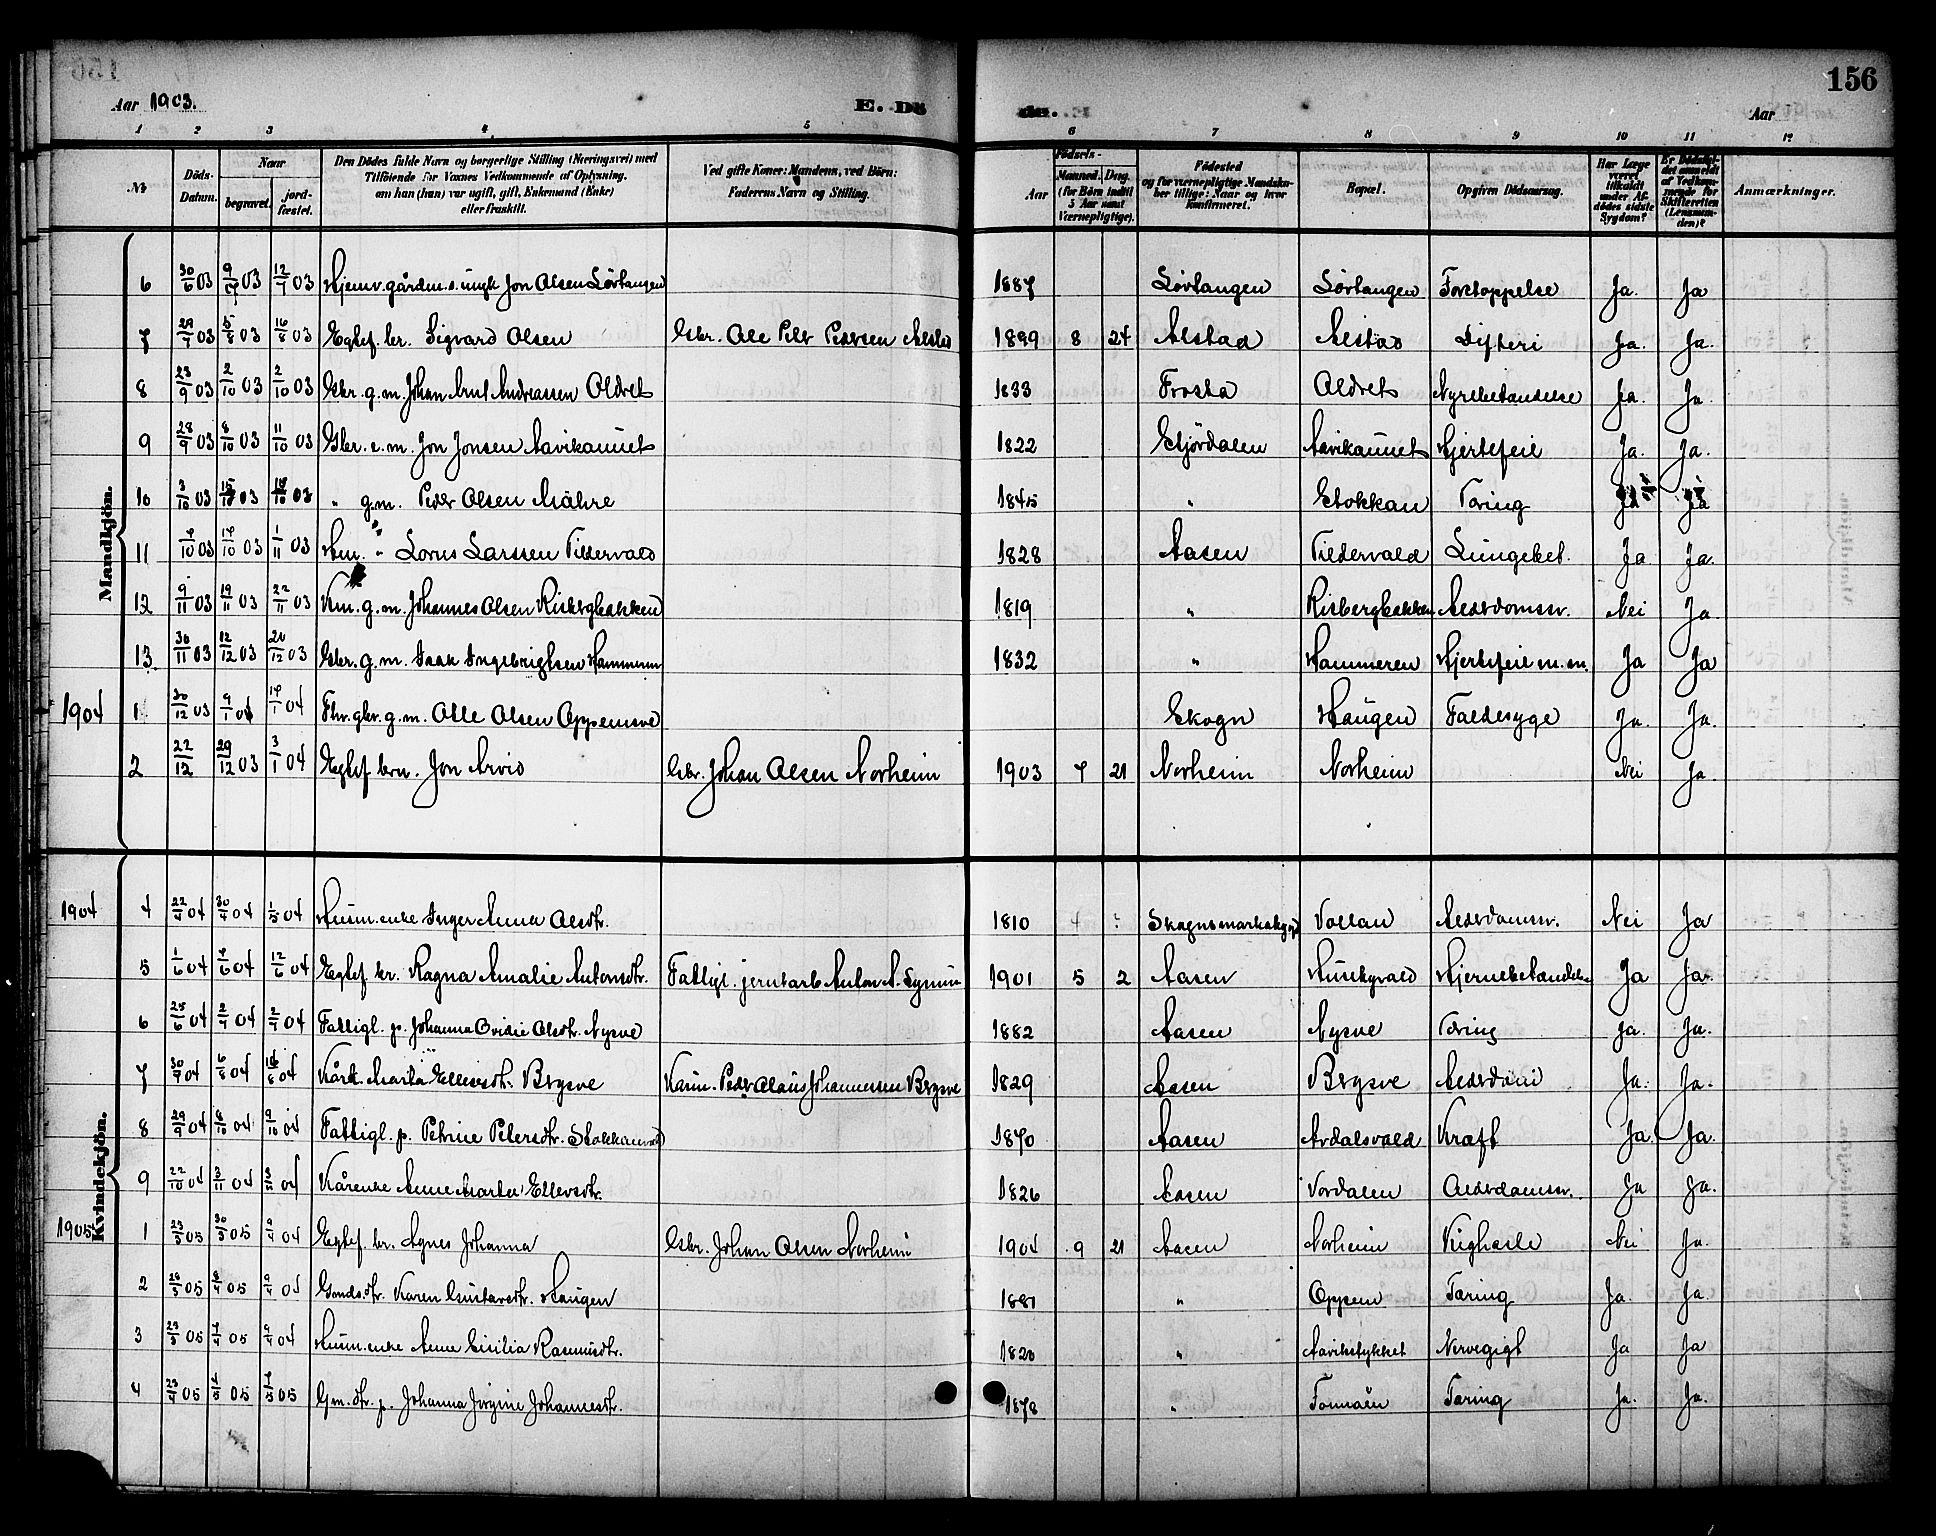 156
Aar 1903. E. Dö de. Aar
1 2 3 4 5 6 7 8 9 10 11 12
№ Döds-Datum. Naar begravet. jordfæstet. Den Dödes fulde Navn og borgerlige Stilling (Næringsvei) med Tilföiende for Voxnes Vedkommende af Oplysning, om han (hun) var ugift, gift, Enkemand (Enke) eller fraskilt. Ved gifte Koner: Mandens, ved Börn: Faderens Navn og Stilling. Födsels- Aar Maaned. Dag. (for Börn indtil 5 Aar samt Værnepligtige). Födested og for værnepligtige Mandskaber tillige: Naar og hvor konfirmeret. Bopæl. Opgiven Dödsaarsag. Har Læge været tilkaldt under Afdödes sidste Sygdom? Er Dödsfaldet anmeldt af Vedkommende for Skifteretten (Lensmanden)? Anmærkninger.
Mandkjön.
6 30/6 03 9/7 03 12/7 03 Hjemv. gårdm. s. ungk Jon Olsen Lörtangen 1887 Lörtangen Lörtangen Forstoppelse Ja. Ja
7 29/7 03 5/8 03 16/8 03 Egtef. br. Sigvard Olsen Gbr. Ole Petr Pedersen Alstad 1899 8 24 Alstad Alstad Difteri Ja. Ja.
8 23/9 03 2/10 03 2/10 03 Gbr. g. m. Johan Arnt Andreassen Oldret 1833 Frosta Oldret Nyrebetændelse Ja. Ja.
9 28/9 03 8/10 03 11/10 03 Gbr. e. m. Jon Jonsen Aavikaunet 1822 Stjördalen Aavikaunet Hjertefeil Ja. Ja.
10 3/10 03 15/10 03 18/10 03 " g. m. Peder Olsen Mähre 1845 " Stokkan Tæring Ja Ja
11 7/10 03 17/10 03 1/11 03 Hm. " Lorns Larssen Tildervald 1828 Aasen Tildervald Lungebet. Ja Ja.
12 9/11 03 19/11 03 22/11 03 Km. g. m. Johannes Olsen Risbergbakken 1819 " Risbergbakken Alderdomssv. Nei Ja.
13. 30/11 03 12/12 03 20/12 03 Gbr. g. m. Isak Ingebrigtsen Hammeren 1832 " Hammeren Hjertefeil m. m. Ja Ja
1904 1 30/12 03 9/1 04 17/1 04 Fhv. gbr. g. m. Olle Olsen Oppemsve Skogn Haugen Faldesyge Ja. Ja.
2 22/12 29/12 03 3/1 04 Egtef brn. Jon Arvid Gbr. Johan Olsen Norheim 1903 7 21 Norheim Norheim Nei Ja.
Kvindekjön.
1904 4 22/4 04 30/4 04 1/5 04 Husm. enke Inger Anna Olsdtr. 1810 Vollan Alderdomssv. Nei Ja
5 1/6 04 7/6 04 12/6 04 Egtef br. Ragna Amalie Antonsdtr. Fattigl. jernbarb Anton A. 1901 5 2 Aasen Husbyvald Hjernebetændelse Ja Ja.
6 25/6 04 2/7 04 2/7 04 Fattigl. p. Johanna Ovidie Olsdtr. Nysve 1882 Aasen Nysve Tæring Ja. Ja.
7 30/7 04 6/8 04 04 Kårk. Marta Ellevsdtr. Brysve Kårm. Peder Olaus Johannessen Brysve 1829 Aasen Brysve Alderdom Ja. Ja.
8 29/9 04 8/10 04 9/10 04 Fattigl. p. Petrine Petersdtr. Stokkanvald 1870 Aasen Ardalsvald Kræft Ja. Ja.
9 22/10 04 3/11 04 04 Kårenke Anne Marta Ellevsdtr. 1826 Aasen Vordalen Alderdomssv. Ja Ja.
1905 1 23/3 05 30/3 05 9/4 04 Egtef. br. Agnes Johanna Gbr. Johan Olsen Norheim 1904 9 21 Aasen Norheim Kighoste Nei Ja.
2 28/3 05 8/4 05 9/4 04 Gmds. dtr. Karen Gustavsdtr. Haugen 1881 " Oppem Tæring Ja. Ja
3 23/3 05 7/4 05 9/4 04 Husm. enke Anne Cicilia Rasmusdtr. 1820 " Aavikstykket Nervegigt Ja Ja
4 23/4 05 4/5 05 7/5 05 Gm. dtr. p. Johanna Jörgine Johannesdtr. 1878 " Fonnåen Tæring Ja. Ja.